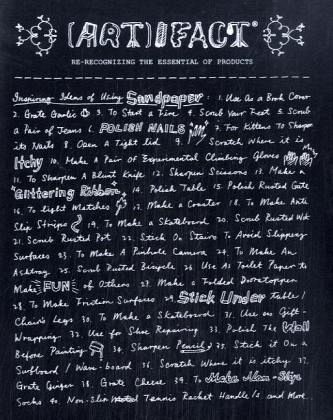 (ART)IFACT
RE-RECOGNIZING THE ESSENTIAL OF PRODUCTS
Inspiring Ideas of Using Sandpaper: 1. Use As a Book Cover
2. Grate Garlic 3. To Start a Fire 4. Scrub Your Feet 5. Scrub
a Pair of Jeans 6. POLISH NAILS 7. For Kittens To Sharpen
its Nails 8. Open A Tight lid 9. Scratch Where it is
Itchy 10. Make A Pair of Experimental Climbing Gloves
11. To Sharpen A Blunt Knife 12. Sharpen Scissors 13. Make a
"Glittering Ribbon" 14. Polish Table 15. Polish Rusted Gate
16. To Light Matches 17. Make a Coaster 18. To Make Anti
Slip Strips 19. To Make a Skateboard 20. Scrub Rusted Wok
21. Scrub Rusted Pot 22. Stick On Stairs To Avoid Slippery
Surfaces 23. To Make A Pinhole Camera 24. To Make An
Ashtray 25. Scrub Rusted Bicycle 26. Use As Toilet Paper to
Make FUN of Others 27. Make a Folded Doorstopper
28. To Make Friction Surfaces 29. Stick Under Table/
Chair's Legs 30. To Make a Skateboard 31. Use as Gift-
Wrapping 32. Use for Shoe Repairing 33. Polish The Wall
Before Painting 34. Sharpen Pencil/ 35. Stick it On a
Surfboard/ Wave-board 36. Scratch Where it is itchy 37.
Grate Ginger 38. Grate Cheese 39. To Make Non-Slip
Socks 40. Non-Slip Tennis Racket Handle/s and More...